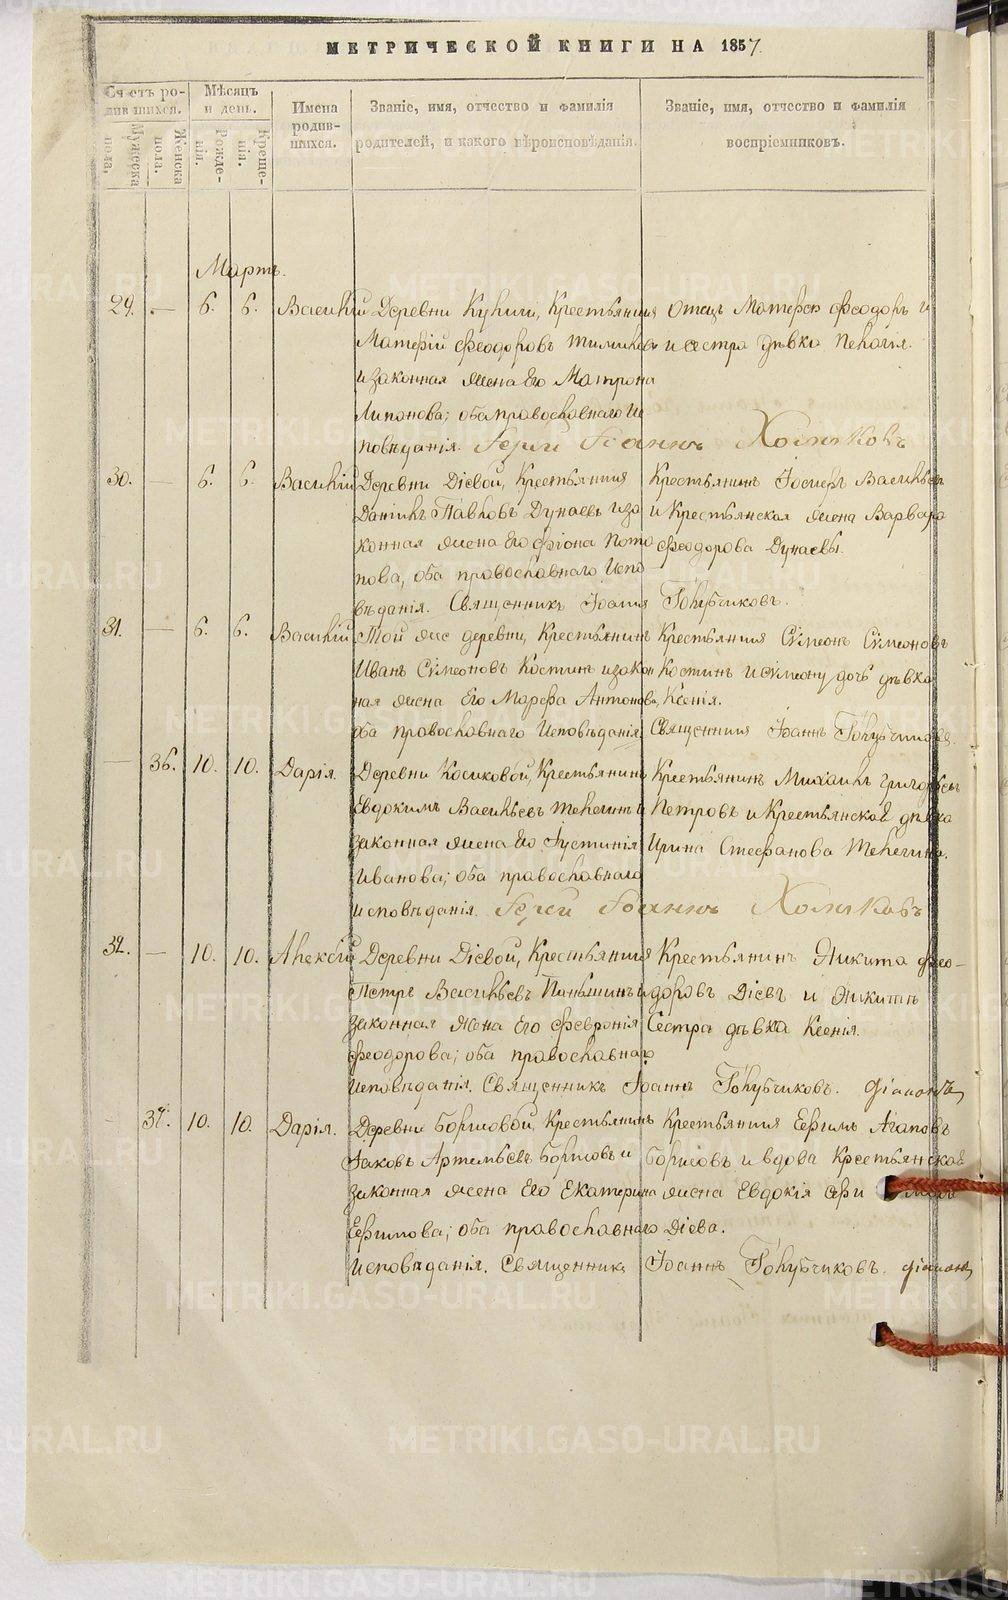 МЕТРИЧЕСКОЙ КНИГИ НА 1857.
Счетъ родившихся.
Мужеска пола.
Женска пола.
Мѣсяцъ и день.
Рожденія.
Крещенія.
Имена родившихся.
Званіе, имя, отчество и фамилія родителей, и какого вѣроисповѣданія.
Званіе, имя, отчество и фамилія воспріемниковъ.
Мартъ.
29. — 6. 6. Василій Деревни Крестьянинъ Отецъ Матеріевъ Феодоръ и
Матерій Феодоровъ и сестра дѣвка Пелагія.
и законная жена его Матрона
обаправославнаго Ис
повѣданія. Іерей Іоаннъ Хомяковъ
30. — 6. 6. Василій Деревни Діевой, Крестьянинъ Крестьянинъ Іосифъ Васильевъ
Даніилъ Павловъ Дунаевъ и за и Крестьянская жена Варвара
конная жена его Фіона Пота Феодорова Дунаевы.
пова, оба православнаго Испо
вѣданія. Священникъ Іоаннъ Голубчиковъ.
31. — 6. 6. Василій Той же деревни, Крестьянинъ Крестьянинъ Сѵмеонъ Сѵмеоновъ
Иванъ Сѵмеоновъ Костинъ и закон Костинъ и Сѵмеону дочь дѣвка
ная жена его Марфа Антонова, Ксенія.
оба православнаго Исповѣданія. Священникъ Іоаннъ Голубчиковъ.
— 36. 10. 10. Дарія. Деревни Косиковой, Крестьянинъ Крестьянинъ Михаилъ Григорьевъ
Евдокимъ Васильевъ Телегинъ и Петровъ и Крестьянская дѣвка
законная жена его Іустинія Ирина Стефанова Телегина.
Иванова; оба православнаго
исповѣданія. Іерей Іоаннъ Хомяковъ
32. — 10. 10. Алексѣй Деревни Діевой, Крестьянинъ Крестьянинъ Никита Фео-
Петръ Васильевъ Паньшинъ и доровъ Діевъ и Никитѣ
законная жена его Февронія Сестра дѣвка Ксенія.
Феодорова; оба православнаго
исповѣданія. Священникъ Іоаннъ Голубчиковъ. Діаконъ
— 37. 10. 10. Дарія. Деревни Борисовой, Крестьянинъ Крестьянинъ Ефимъ Агаповъ
Іаковъ Артемьевъ Борисовъ и Борисовъ и вдова Крестьянская
законная жена его Екатерина жена Евдокія
Ефимова; оба православнаго Діева.
исповѣданія. Священникъ Іоаннъ Голубчиковъ. Діаконъ
METRIKI.GASO-URAL.RU